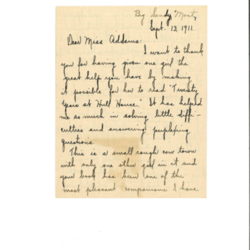 By Sandy Mont,
Sept. 12, 1911.
Dear Miss Addams:
I want to thank
you for having given one girl the
great help you have by making
it possible for her to read "Twenty
Years at Hull House." It has helped
me so much in solving little diffi-
culties and answering perplexing
questions.
This is a small rough cow town
with only one other girl in it and
your book has been one of the
most pleasant companions I have